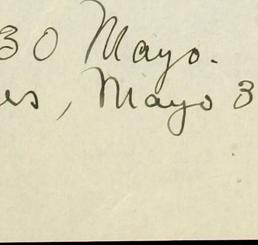 30 Mayo.
es, Mayo 3